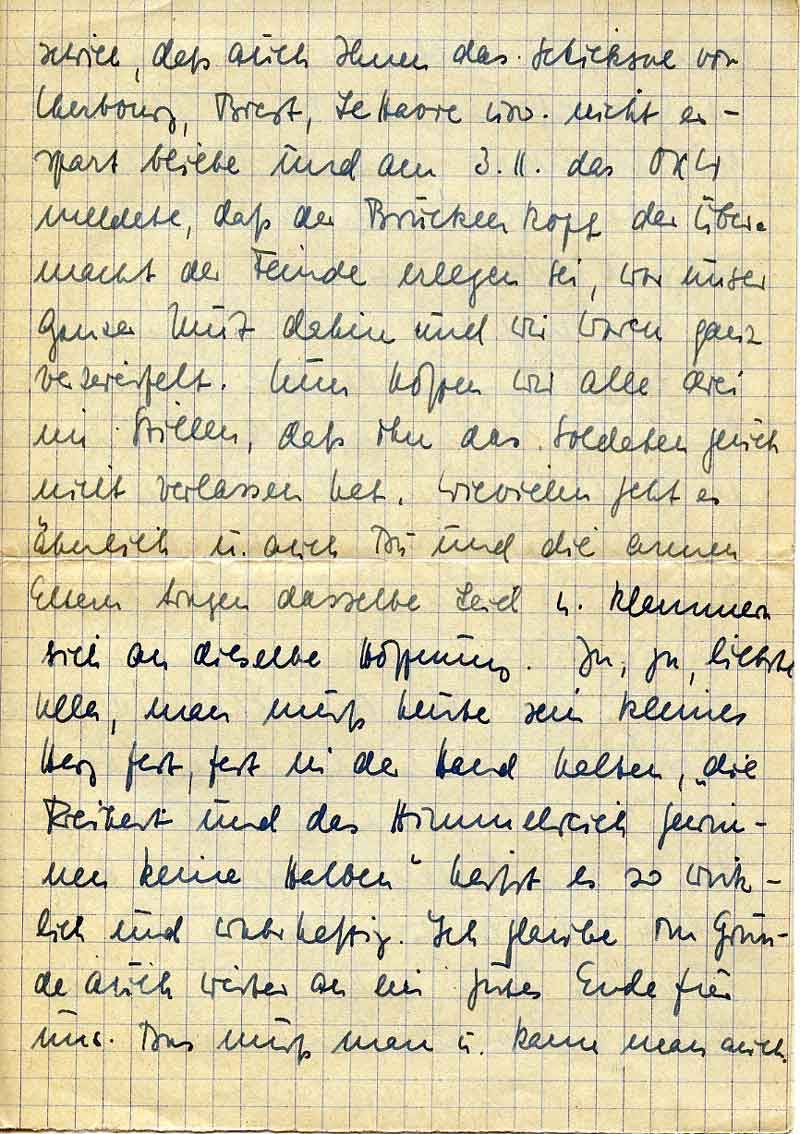 schien, daß auch Ihnen das Schicksal von
Cherbourg, Brest, Le Havre usw. nicht er-
spart bliebe und am 3.11. das OKW
meldete, daß der Brückenkopf der Über-
macht der Feinde erlegen sei, war unser
ganzer Mut dahin und wir waren ganz
verzweifelt. Nun hoffen wir alle drei
im Stillen, daß ihn das Soldatenglück
nicht verlassen hat. Wievielen geht es
ähnlich u. auch Du und die armen
Eltern tragen dasselbe Leid u. klammern
sich an dieselbe Hoffnung. Ja, ja, liebste
man muß heute sein kleines
Herz fest, fest in der Hand halten, „die
Freiheit und das Himmelreich gewin-
nen keine Halben“ heißt es so wirk-
lich und wahrhaftig. Ich glaube im Grun-
de auch weiter an ein gutes Ende für
uns. Das muß man u. kann man auch